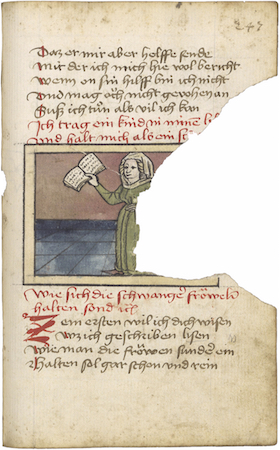 247
Daz er mir aber helffe sende
Mit der ich mich hie wol bericht
Wenn on sin hilff bin ich nicht
Und mag och nicht gevohen an
Suß ich tůn als vil ich kan
Ich trag ein kind in minem
und halt mich als ein
Wie sich die schwanger fröwen
halten sond
Zem ersten wil ich dich wisen
waz ich geschriben lisen
Wie man die fröwen sunder ein
Halten sol gar schon und rein